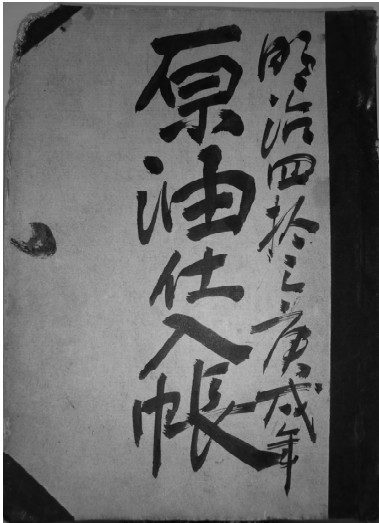 明治四拾三庚戌年
原油仕入帳